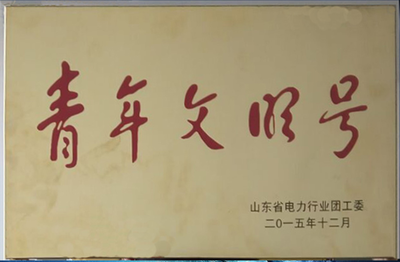 青年文明号
山东省电力行业团工委
二〇一五年十二月